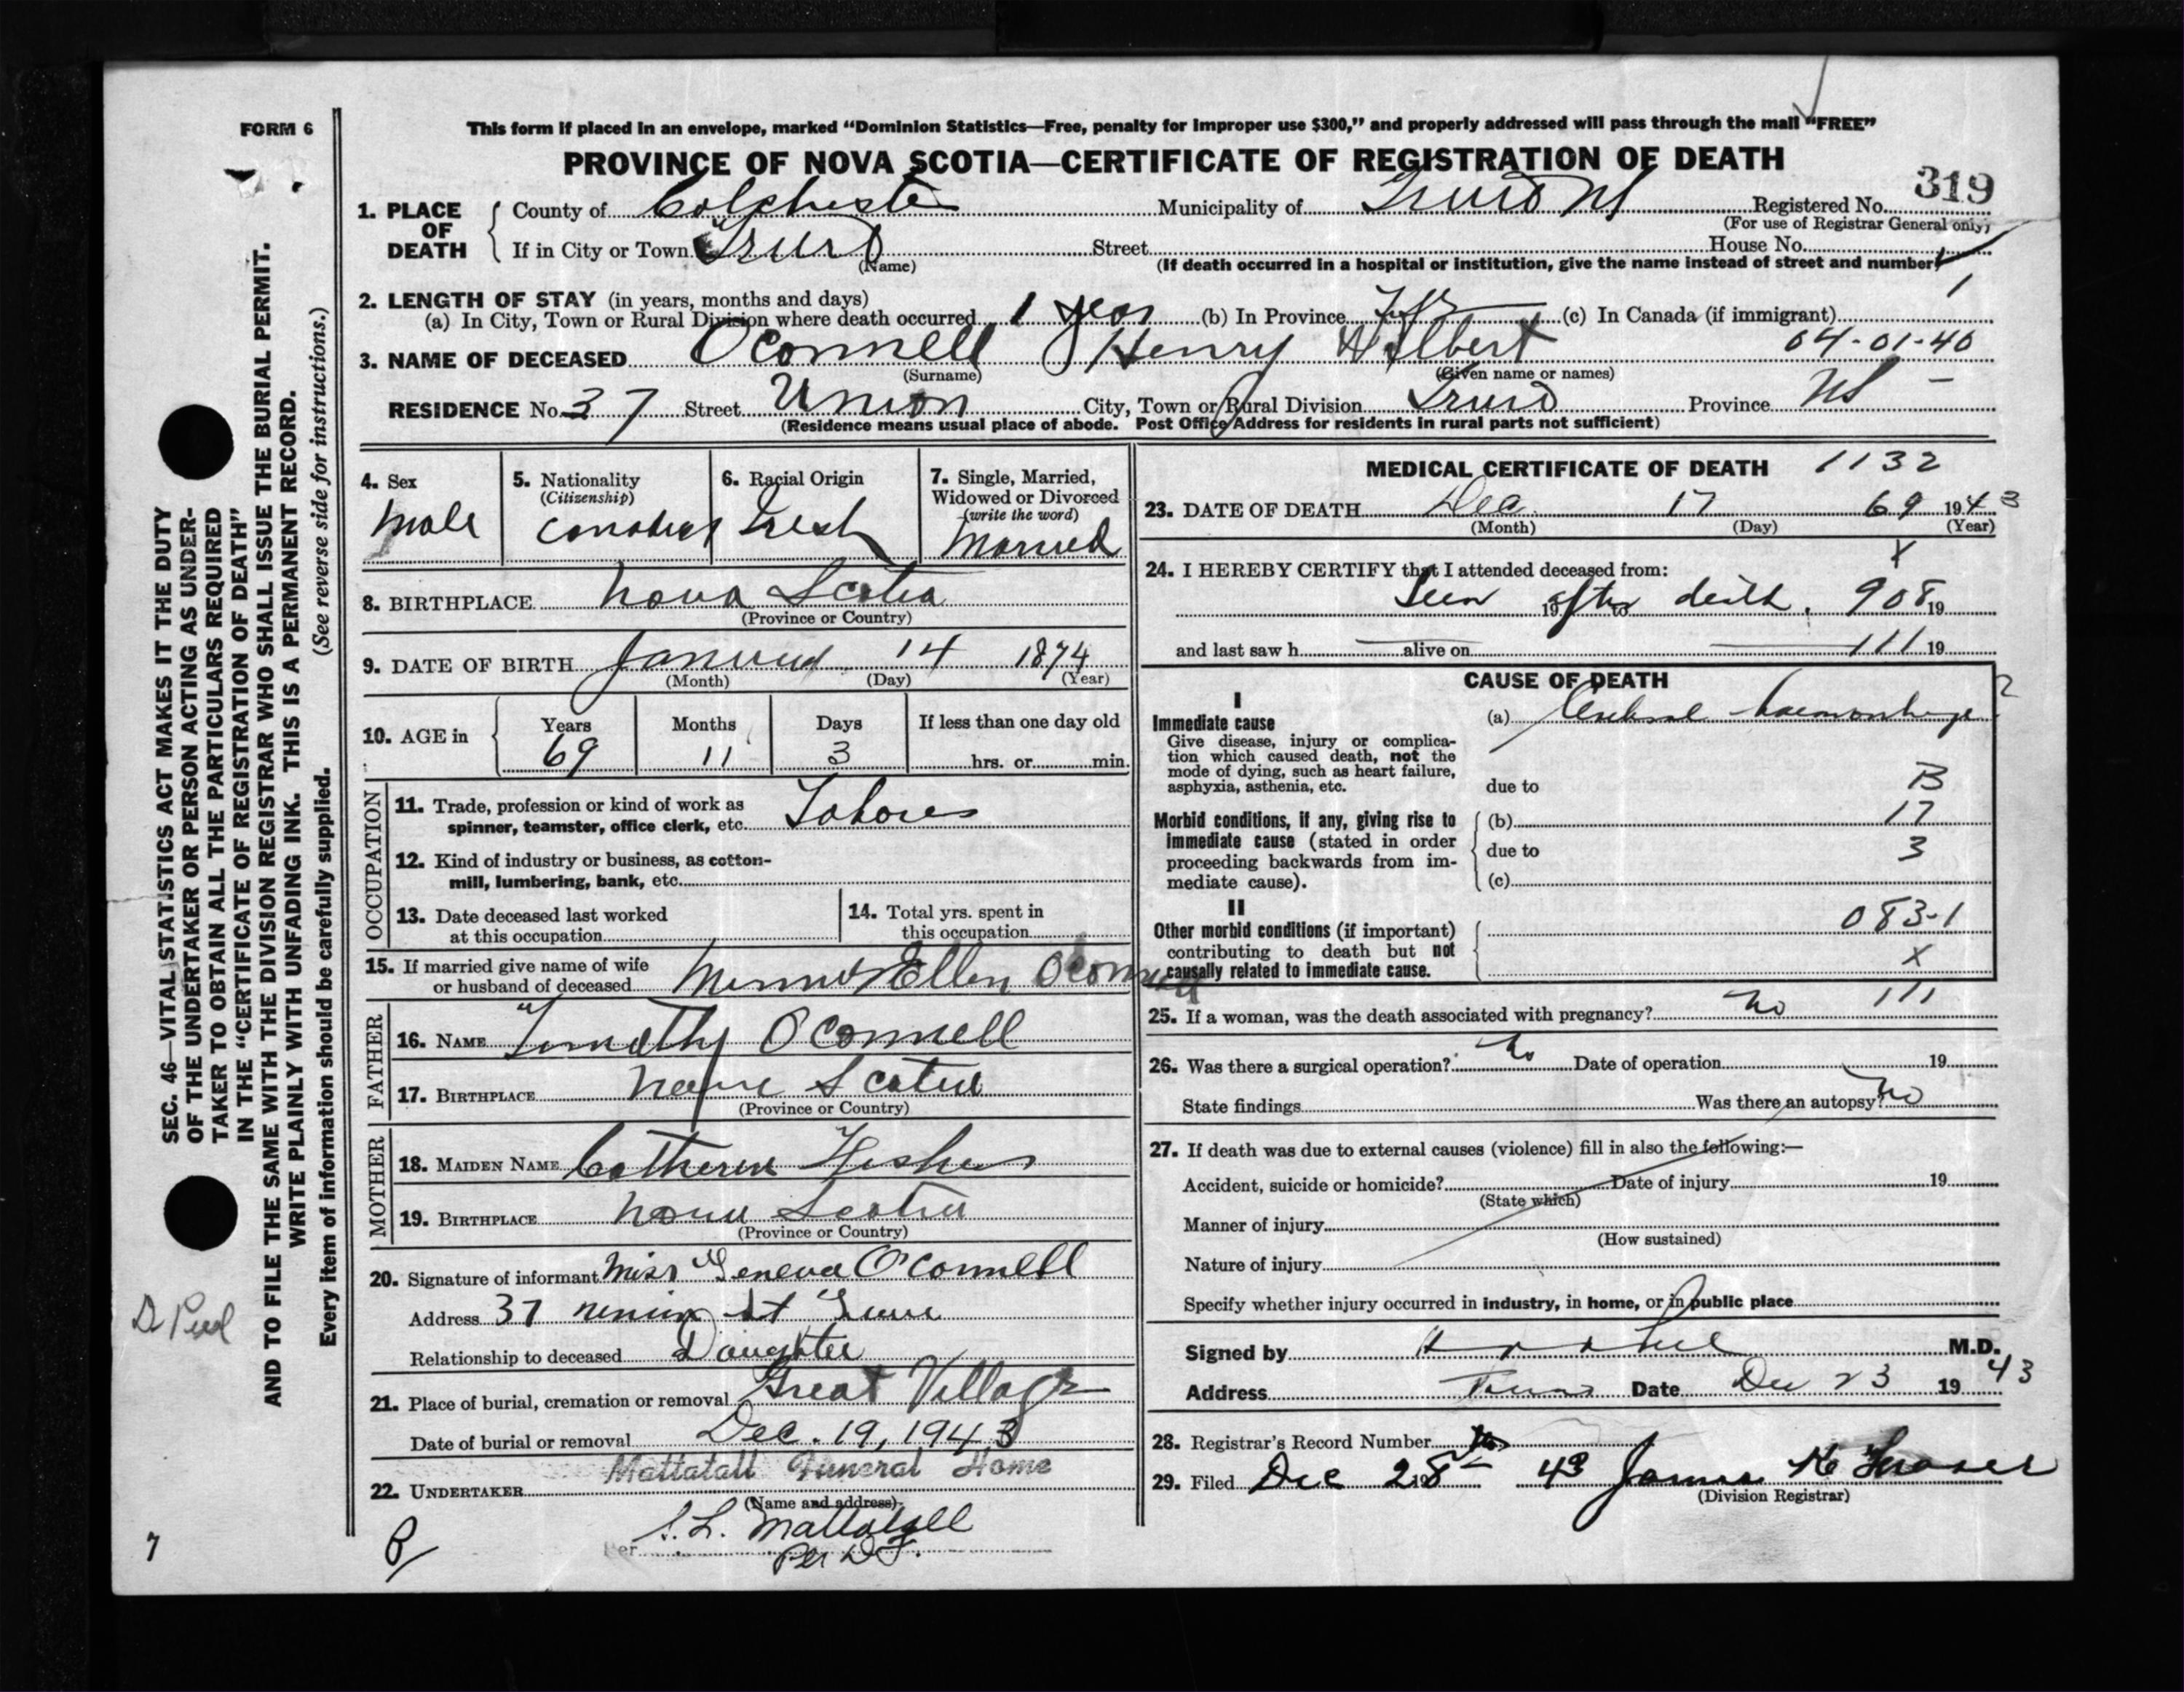 FORM 6
This form if placed in an envelope, marked “Dominion Statistics—Free, penalty for improper use $300,” and properly addressed will pass through the mail “FREE”
PROVINCE OF NOVA SCOTIA—CERTIFICATE OF REGISTRATION OF DEATH
319
1. PLACE OF DEATH { County of Colchester Municipality of Truro NS Registered No.
(For use of Registrar General only)
If in City or Town Truro Street House No.
(Name)
(If death occurred in a hospital or institution, give the name instead of street and number)
2. LENGTH OF STAY (in years, months and days)
(a) In City, Town or Rural Division where death occurred 1 year (b) In Province Life (c) In Canada (if immigrant)
3. NAME OF DECEASED OConnell Henry Wilbert 04-01-40
(Surname) (Given name or names)
RESIDENCE No. 37 Street Union City, Town or Rural Division Truro Province NS
(Residence means usual place of abode. Post Office Address for residents in rural parts not sufficient)
4. Sex Male
5. Nationality (Citizenship)
6. Racial Origin Irish
7. Single, Married, Widowed or Divorced (write the word) Married
8. BIRTHPLACE Nova Scotia
(Province or Country)
9. DATE OF BIRTH January 14 1874
(Month) (Day) (Year)
10. AGE in { Years 69 Months 11 Days 3 If less than one day old
hrs. or min.
OCCUPATION
11. Trade, profession or kind of work as
spinner, teamster, office clerk, etc. Laborer
12. Kind of industry or business, as cotton-
mill, lumbering, bank, etc.
13. Date deceased last worked
at this occupation
14. Total yrs. spent in
this occupation
15. If married give name of wife
or husband of deceased Minnie Ellen OConnell
FATHER
16. NAME Timothy OConnell
17. BIRTHPLACE Nova Scotia
(Province or Country)
MOTHER
18. MAIDEN NAME Catherine Fisher
19. BIRTHPLACE Nova Scotia
(Province or Country)
20. Signature of informant Miss Geneva O'Connell
Address 37 St
Relationship to deceased Daughter
21. Place of burial, cremation or removal Great Village
Date of burial or removal Dec. 19, 1943
Mattatall Funeral Home
22. UNDERTAKER
(Name and address)
Mattatall
Per
Per
MEDICAL CERTIFICATE OF DEATH 1132
23. DATE OF DEATH Dec. 17 69 1943
(Month) (Day) (Year)
X
24. I HEREBY CERTIFY that I attended deceased from:
Seen 19 after to death. 908 19
and last saw h alive on 111 19
CAUSE OF DEATH
2
I
Immediate cause
Give disease, injury or complica-
tion which caused death, not the
mode of dying, such as heart failure,
asphyxia, asthenia, etc.
(a) Cerebral haemorrhage
due to B
Morbid conditions, if any, giving rise to
immediate cause (stated in order
proceeding backwards from im-
mediate cause).
(b) 17
due to 3
(c)
II
Other morbid conditions (if important)
contributing to death but not
causally related to immediate cause.
083-1
X
111
25. If a woman, was the death associated with pregnancy? no
26. Was there a surgical operation? no Date of operation 19
State findings Was there an autopsy? no
27. If death was due to external causes (violence) fill in also the following:—
Accident, suicide or homicide? Date of injury 19
(State which)
Manner of injury
(How sustained)
Nature of injury
Specify whether injury occurred in industry, in home, or in public place
Signed by M.D.
Address Truro Date Dec 23 19 43
28. Registrar's Record Number
29. Filed Dec 28 19 43 James
(Division Registrar)
SEC. 46—VITAL STATISTICS ACT MAKES IT THE DUTY
OF THE UNDERTAKER OR PERSON ACTING AS UNDER-
TAKER TO OBTAIN ALL THE PARTICULARS REQUIRED
IN THE “CERTIFICATE OF REGISTRATION OF DEATH”
AND TO FILE THE SAME WITH THE DIVISION REGISTRAR WHO SHALL ISSUE THE BURIAL PERMIT.
WRITE PLAINLY WITH UNFADING INK. THIS IS A PERMANENT RECORD.
Every item of information should be carefully supplied. (See reverse side for instructions.)
7